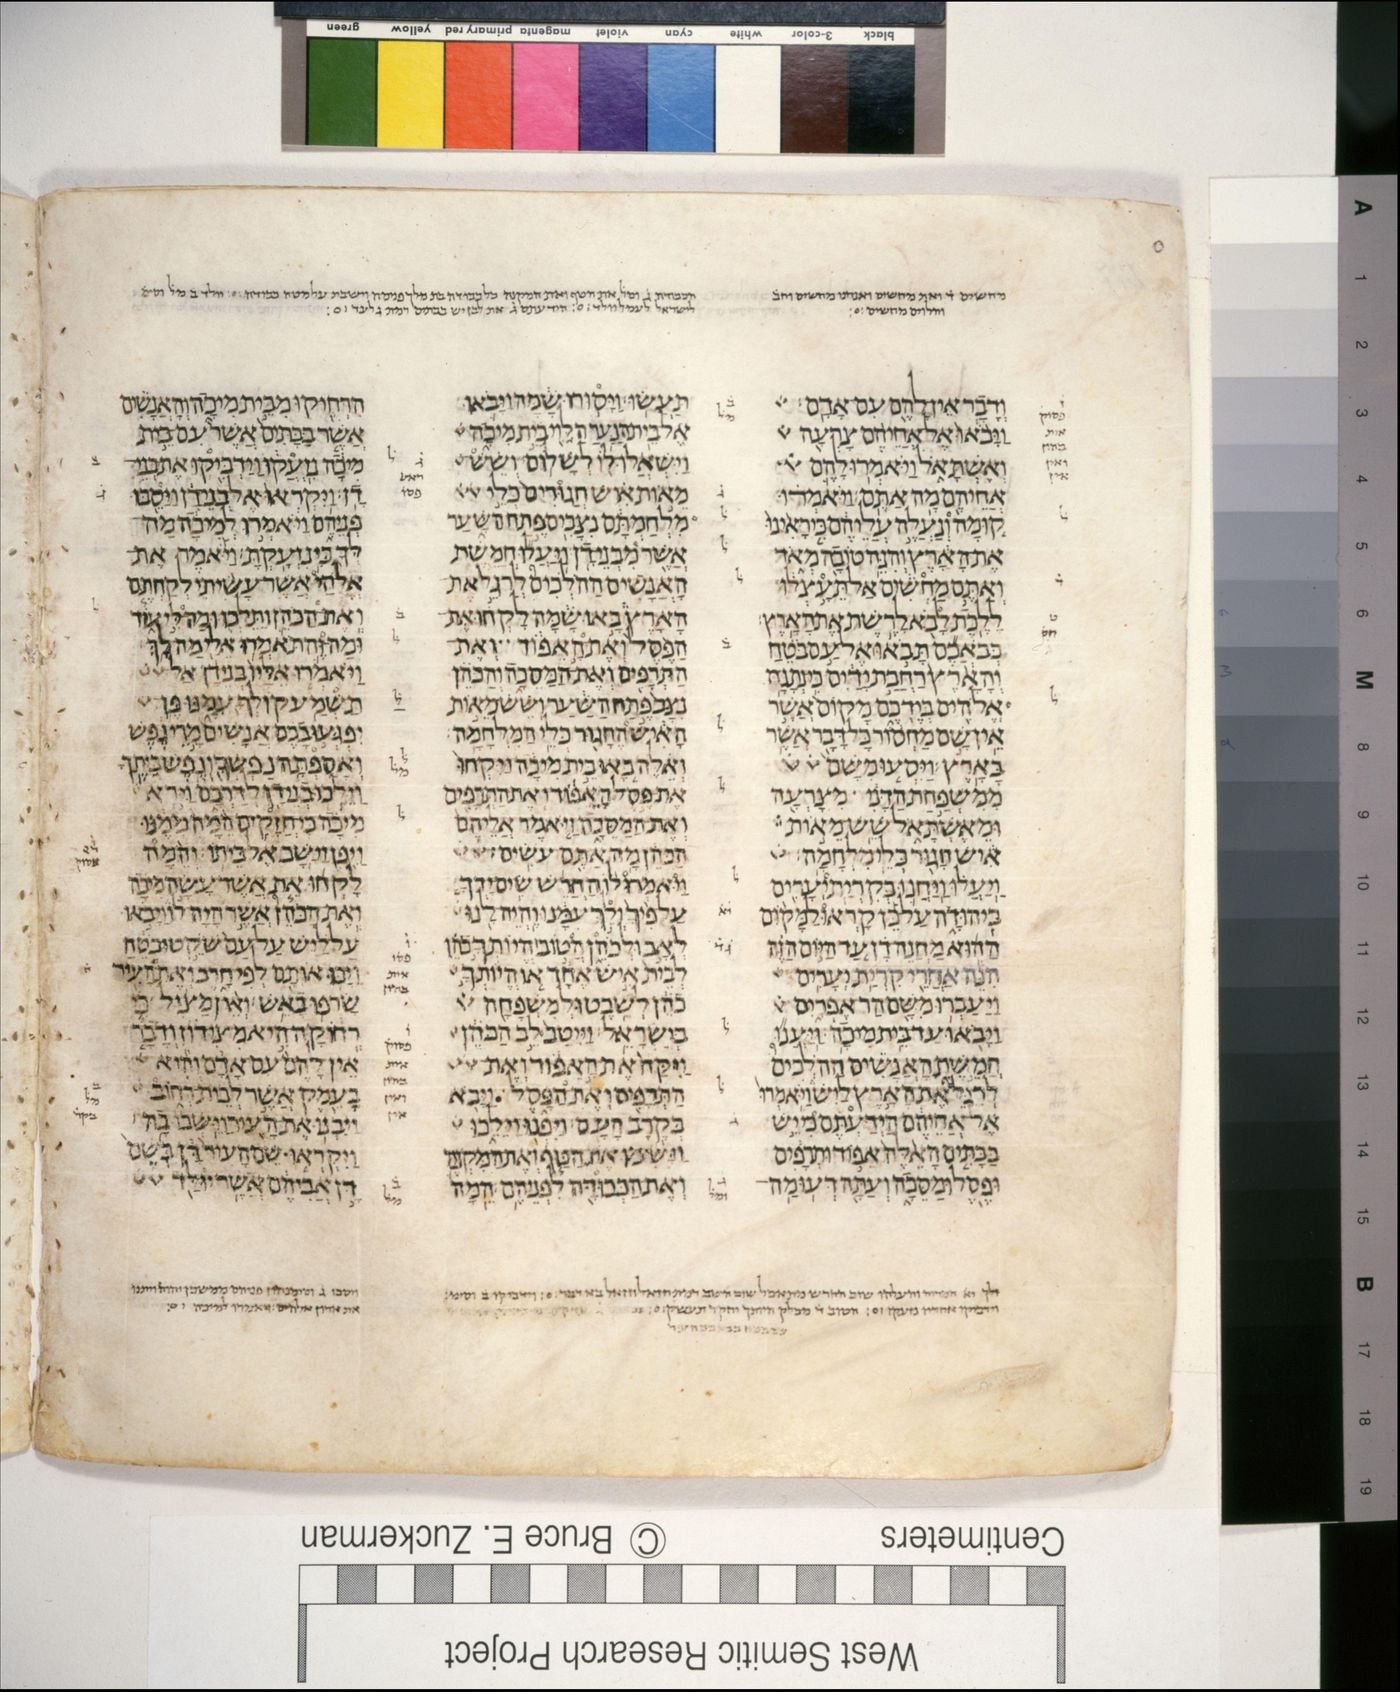 green yellow primary red magenta violet cyan white 3-color black
מחשים ד ואף מחשים ואנחנו מחשים
ודבר אין להם עם אדם
ויבאו אל אחיהם צרעה
ואשתאל ויאמרו להם
אחיהם מה אתם ויאמרו
קומה ונעלה עליהם כי ראינו
את הארץ והנה טובה מאד
ואתם מחשים אל תעצלו
ללכת לבא לרשת את הארץ
כבאכם תבאו אל עם בטח
והארץ רחבת ידים כי נתנה
אלהים בידכם מקום אשר
אין שם מחסור כל דבר אשר
בארץ ויסעו משם
ממשפחת הדני מצרעה
ומאשתאל שש מאות
איש חגור כלי מלחמה
ויעלו ויחנו בקרית יערים
ביהודה על כן קראו למקום
ההוא מחנה דן עד היום הזה
הנה אחרי קרית יערים
ויעברו משם הר אפרים
ויבאו עד בית מיכה ויענו
חמשת האנשים ההלכים
לרגל את הארץ ליש ויאמרו
אל אחיהם הידעתם כי יש
בבתים האלה אפוד ותרפים
ופסל ומסכה ועתה דעו מה
תעשו ויסורו שמה ויבאו
אל בית הנער הלוי בית מיכה
וישאלו לו לשלום ושש
מאות איש חגורים כלי
מלחמתם נצבים פתח השער
אשר מבני דן ויעלו חמשת
האנשים ההלכים לרגל את
הארץ באו שמה לקחו את
הפסל ואת האפוד ואת
התרפים ואת המסכה והכהן
נצב פתח השער ושש מאות
האיש החגור כלי המלחמה
ואלה באו בית מיכה ויקחו
את פסל האפוד ואת התרפים
ואת המסכה ויאמר אליהם
הכהן מה אתם עשים
ויאמרו לו החרש שים ידך
על פיך ולך עמנו והיה לנו
לאב ולכהן הטוב היותך כהן
לבית איש אחד או היותך
כהן לשבט ולמשפחה
בישראל וייטב לב הכהן
ויקח את האפוד ואת
התרפים ואת הפסל ויבא
בקרב העם ויפנו וילכו
וישימו את הטף ואת המקנה
ואת הכבודה לפניהם המה
הרחיקו מבית מיכה והאנשים
אשר בבתים אשר עם בית
מיכה נזעקו וידביקו את בני
דן ויקראו אל בני דן ויסבו
פניהם ויאמרו למיכה מה
לך כי נזעקת ויאמר את
אלהי אשר עשיתי לקחתם
ואת הכהן ותלכו ומה לי עוד
ומה זה תאמרו אלי מה לך
ויאמרו אליו בני דן אל
תשמע קולך עמנו פן
יפגעו בכם אנשים מרי נפש
ואספתה נפשך ונפש ביתך
וילכו בני דן לדרכם וירא
מיכה כי חזקים המה ממנו
ויפן וישב אל ביתו והמה
לקחו את אשר עשה מיכה
ואת הכהן אשר היה לו ויבאו
על ליש על עם שקט ובטח
ויכו אותם לפי חרב ואת העיר
שרפו באש ואין מציל כי
רחוקה היא מצידון ודבר
אין להם עם אדם והיא
בעמק אשר לבית רחוב
ויבנו את העיר וישבו בה
ויקראו שם העיר דן בשם
דן אביהם אשר יולד
A 1 2 3 4 5 6 M 8 9 10 11 12 13 14 15 B 17 18 19
Centimeters © Bruce E. Zuckerman
West Semitic Research Project